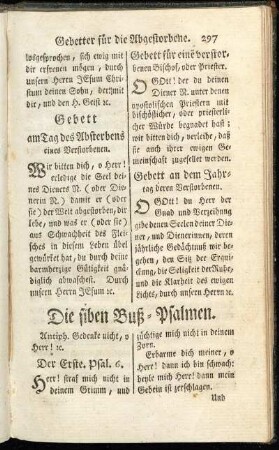 Gebetter für die Abgestorbene. 297
losgesprochen, sich ewig mit
dir erfreuen mögen, durch
unsern Herrn JEsum Chri-
stum deinen Sohn, der mit
dir, und den H. Geist ꝛc.
Gebett
am Tag des Absterbens
eines Verstorbenen.
Wir bitten dich, o Herr!
erledige die Seel dei-
nes Dieners N. (oder Die-
nerin N.) damit er (oder
sie) der Welt abgestorben, dir
lebe, und was er (oder sie)
aus Schwachheit des Flei-
sches in diesem Leben übel
gewürket hat, du durch deine
barmherzige Gütigkeit gnä-
diglich abwaschest. Durch
unsern Herrn JEsum ꝛc.
Gebett für einē verstor-
benen Bischof, oder Priester.
O GOtt! der du deinen
Diener N. unter denen
apostolischen Priestern mit
bischöflicher, oder priesterli-
cher Würde begnadet hast;
wir bitten dich, verleihe, daß
sie auch ihrer ewigen Ge-
meinschaft zugesellet werden.
Gebett an dem Jahr-
tag deren Verstorbenen.
O GOtt! du Herr der
Gnad und Verzeihung
gibe denen Seelen deiner Die-
ner, und Dienerinen, deren
jährliche Gedächtnuß wir be-
gehen, den Sitz der Erqui-
ckung, die Seligkeit der Ruhe,
und die Klarheit des ewigen
Lichts, durch unsern Herrn ꝛc.
Die siben Buß-Psalmen.
Antiph. Gedenke nicht, o
Herr! ꝛc.
Der Erste. Psal. 6.
Herr! straf mich nicht in
deinem Grimm, und
züchtige mich nicht in deinem
Zorn.
Erbarme dich meiner, o
Herr! dann ich bin schwach:
heyle mich Herr! dann mein
Gebein ist zerschlagen.
Und